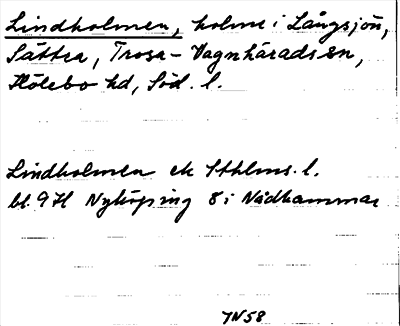 Lindholmen, holme i Långsjön,
Sättra, Trosa-Vagnhärads sn,
Hölebo hd, Söd. l.
Lindholmen ek Sthlms. l.
bl. 9H Nyköping 8 i Nådhammar
JN58